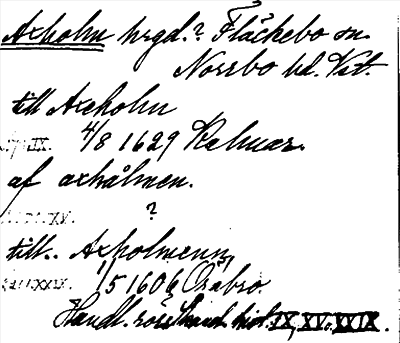 Axholm hrgd.? Fläckebo sn.
Norrbo hd. Vst.
till Axeholm
IX. 4/8 1629 Kalmar.
af axhålmen.
XV. ?
till.. Axholmenn,
XXIX. 1/5 1606 Örebro.
Handl. rör. hist. IX, XV o. XXIX.